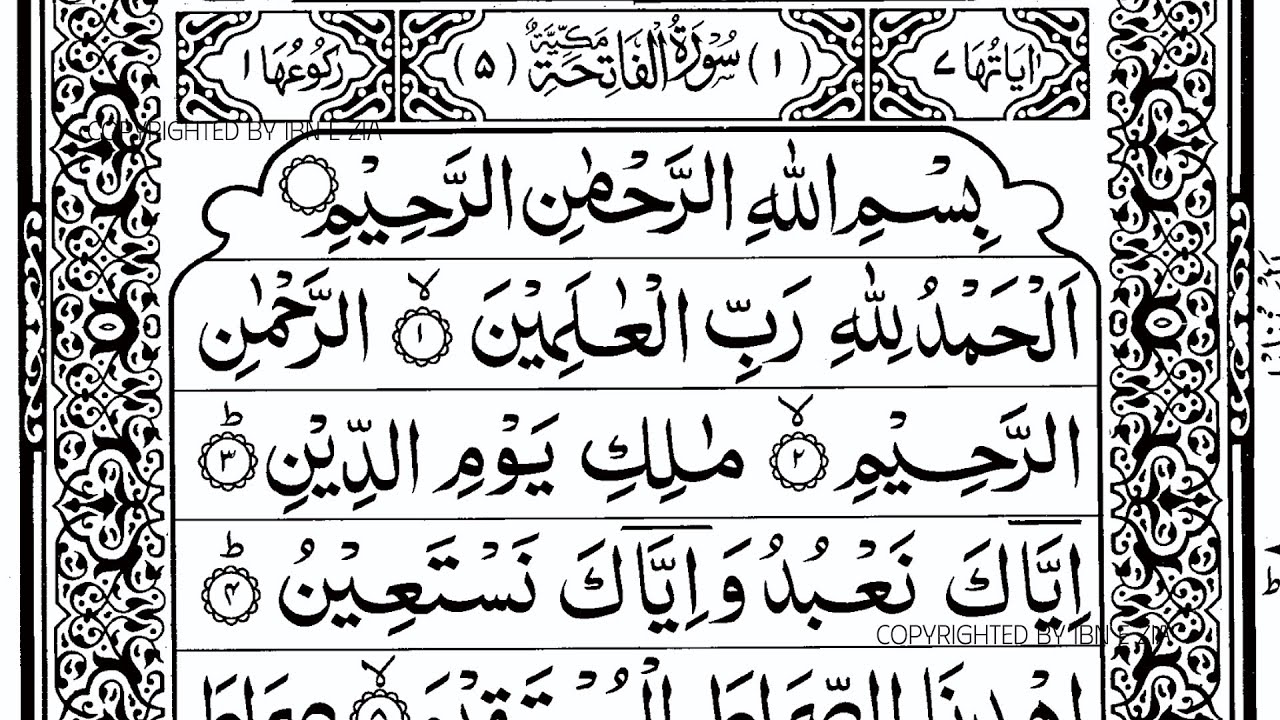 اٰيَاتُهَا ٧ (١) سُوْرَةُ الْفَاتِحَةِ مَكِّيَّةٌ (٥) رَكُوْعُهَا ١
COPYRIGHTED BY IBN E ZIA
بِسْمِ اللّٰهِ الرَّحْمٰنِ الرَّحِيْمِ
اَلْحَمْدُ لِلّٰهِ رَبِّ الْعٰلَمِيْنَ ۙ﴿١﴾ الرَّحْمٰنِ
الرَّحِيْمِ ۙ﴿٢﴾ مٰلِكِ يَوْمِ الدِّيْنِ ؕ﴿٣﴾
اِيَّاكَ نَعْبُدُ وَ اِيَّاكَ نَسْتَعِيْنُ ؕ﴿۴﴾
COPYRIGHTED BY IBN E ZIA
اِهْدِنَا الصِّرَاطَ الْمُسْتَقِيْمَ ۙ﴿۵﴾ صِرَاطَ